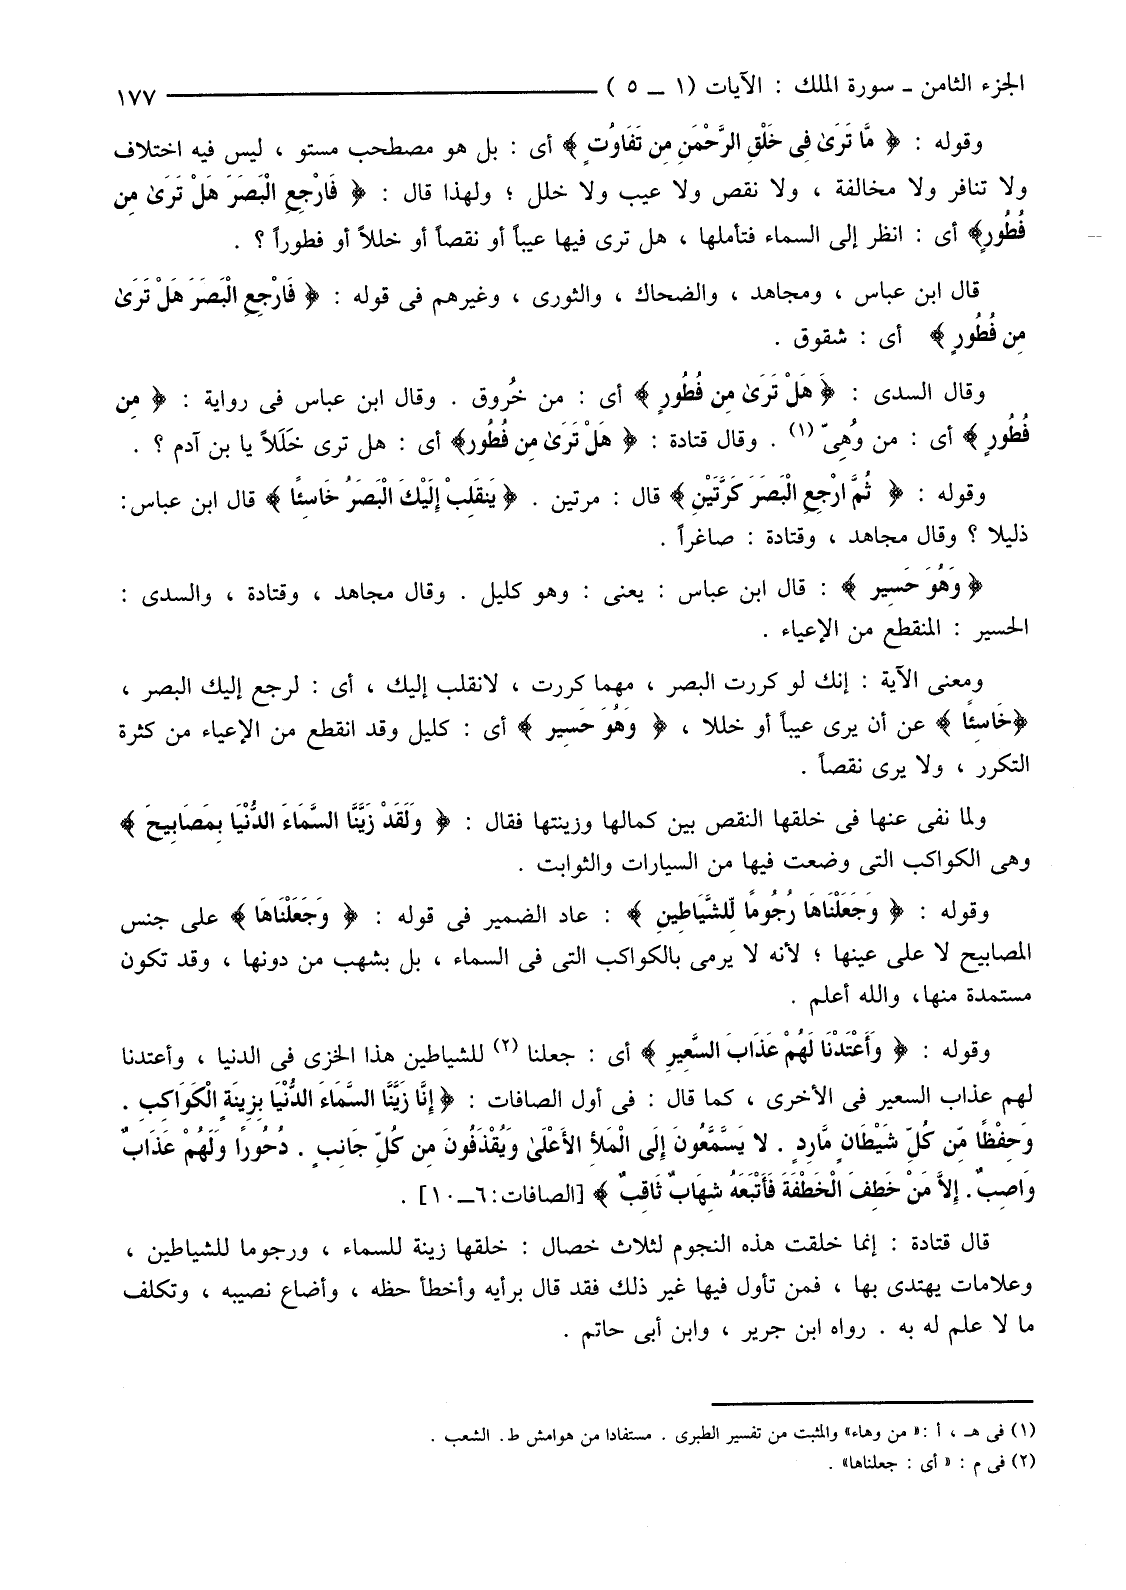 الجزء الثامن ـ سورة الملك : الآيات (١ ـ ٥ ) ١٧٧
وقوله : ﴿ مَّا تَرَىٰ فِي خَلْقِ الرَّحْمَنِ مِن تَفَاوُتٍ ﴾ أى : بل هو مصطحب مستو ، ليس فيه اختلاف
ولا تنافر ولا مخالفة ، ولا نقص ولا عيب ولا خلل ؛ ولهذا قال : ﴿ فَارْجِعِ الْبَصَرَ هَلْ تَرَىٰ مِن
فُطُورٍ﴾ أى : انظر إلى السماء فتأملها ، هل ترى فيها عيباً أو نقصاً أو خللاً أو فطوراً ؟ .
قال ابن عباس ، ومجاهد ، والضحاك ، والثورى ، وغيرهم فى قوله : ﴿ فَارْجِعِ الْبَصَرَ هَلْ تَرَىٰ
مِن فُطُورٍ ﴾ أى : شقوق .
وقال السدى : ﴿ هَلْ تَرَىٰ مِن فُطُورٍ ﴾ أى : من خُروق . وقال ابن عباس فى رواية : ﴿ مِن
فُطُورٍ ﴾ أى : من وُهِىّ (١) . وقال قتادة : ﴿ هَلْ تَرَىٰ مِن فُطُورٍ﴾ أى : هل ترى خَلَلاً يا بن آدم ؟ .
وقوله : ﴿ ثُمَّ ارْجِعِ الْبَصَرَ كَرَّتَيْنِ ﴾ قال : مرتين . ﴿ يَنقَلِبْ إِلَيْكَ الْبَصَرُ خَاسِئًا ﴾ قال ابن عباس:
ذليلا ؟ وقال مجاهد ، وقتادة : صاغراً .
﴿ وَهُوَ حَسِير ﴾ : قال ابن عباس : يعنى : وهو كليل . وقال مجاهد ، وقتادة ، والسدى :
الحسير : المنقطع من الإعياء .
ومعنى الآية : إنك لو كررت البصر ، مهما كررت ، لانقلب إليك ، أى : لرجع إليك البصر ،
﴿خَاسِئًا ﴾ عن أن يرى عيباً أو خللا ، ﴿ وَهُوَ حَسِير ﴾ أى : كليل وقد انقطع من الإعياء من كثرة
التكرر ، ولا يرى نقصاً .
ولما نفى عنها فى خلقها النقص بين كمالها وزينتها فقال : ﴿ وَلَقَدْ زَيَّنَّا السَّمَاءَ الدُّنْيَا بِمَصَابِيحَ ﴾
وهى الكواكب التى وضعت فيها من السيارات والثوابت .
وقوله : ﴿ وَجَعَلْنَاهَا رُجُومًا لِّلشَّيَاطِينِ ﴾ : عاد الضمير فى قوله : ﴿ وَجَعَلْنَاهَا ﴾ على جنس
المصابيح لا على عينها ؛ لأنه لا يرمى بالكواكب التى فى السماء ، بل بشهب من دونها ، وقد تكون
مستمدة منها، والله أعلم .
وقوله : ﴿ وَأَعْتَدْنَا لَهُمْ عَذَابَ السَّعِيرِ ﴾ أى : جعلنا (٢) للشياطين هذا الخزى فى الدنيا ، وأعتدنا
لهم عذاب السعير فى الأخرى ، كما قال : فى أول الصافات : ﴿ إِنَّا زَيَّنَّا السَّمَاءَ الدُّنْيَا بِزِينَةٍ الْكَوَاكِبِ .
وَحِفْظًا مِّن كُلِّ شَيْطَانٍ مَّارِدٍ . لا يَسَّمَّعُونَ إِلَى الْمَلأِ الأَعْلَىٰ وَيُقْذَفُونَ مِن كُلِّ جَانِبٍ . دُحُورًا وَلَهُمْ عَذَابٌ
وَاصِبٌ . إِلاَّ مَنْ خَطِفَ الْخَطْفَةَ فَأَتْبَعَهُ شِهَابٌ ثَاقِبٌ ﴾ [الصافات:٦ـ١٠] .
قال قتادة : إنما خلقت هذه النجوم لثلاث خصال : خلقها زينة للسماء ، ورجوما للشياطين ،
وعلامات يهتدى بها ، فمن تأول فيها غير ذلك فقد قال برأيه وأخطأ حظه ، وأضاع نصيبه ، وتكلف
ما لا علم له به . رواه ابن جرير ، وابن أبى حاتم .
(١) فى هـ ، أ :« من وهاء» والمثبت من تفسير الطبرى . مستفادا من هوامش ط. الشعب .
(٢) فى م : « أى : جعلناها» .